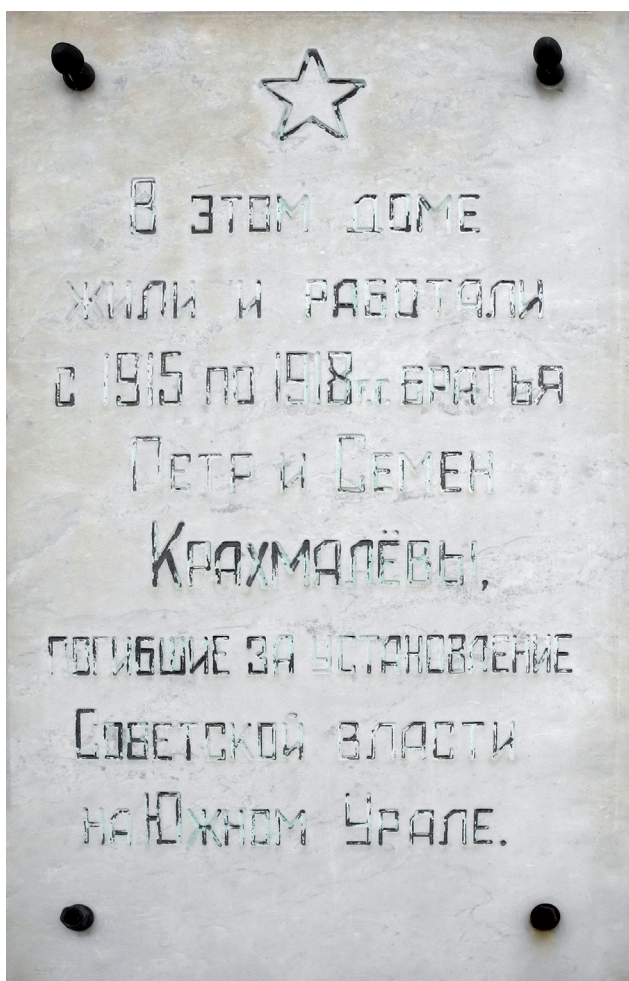 В этом доме
жили и работали
с 1915 по 1918 г.г. братья
Петр и Семен
Крахмалёвы,
погибшие за установление
Советской власти
на Южном Урале.